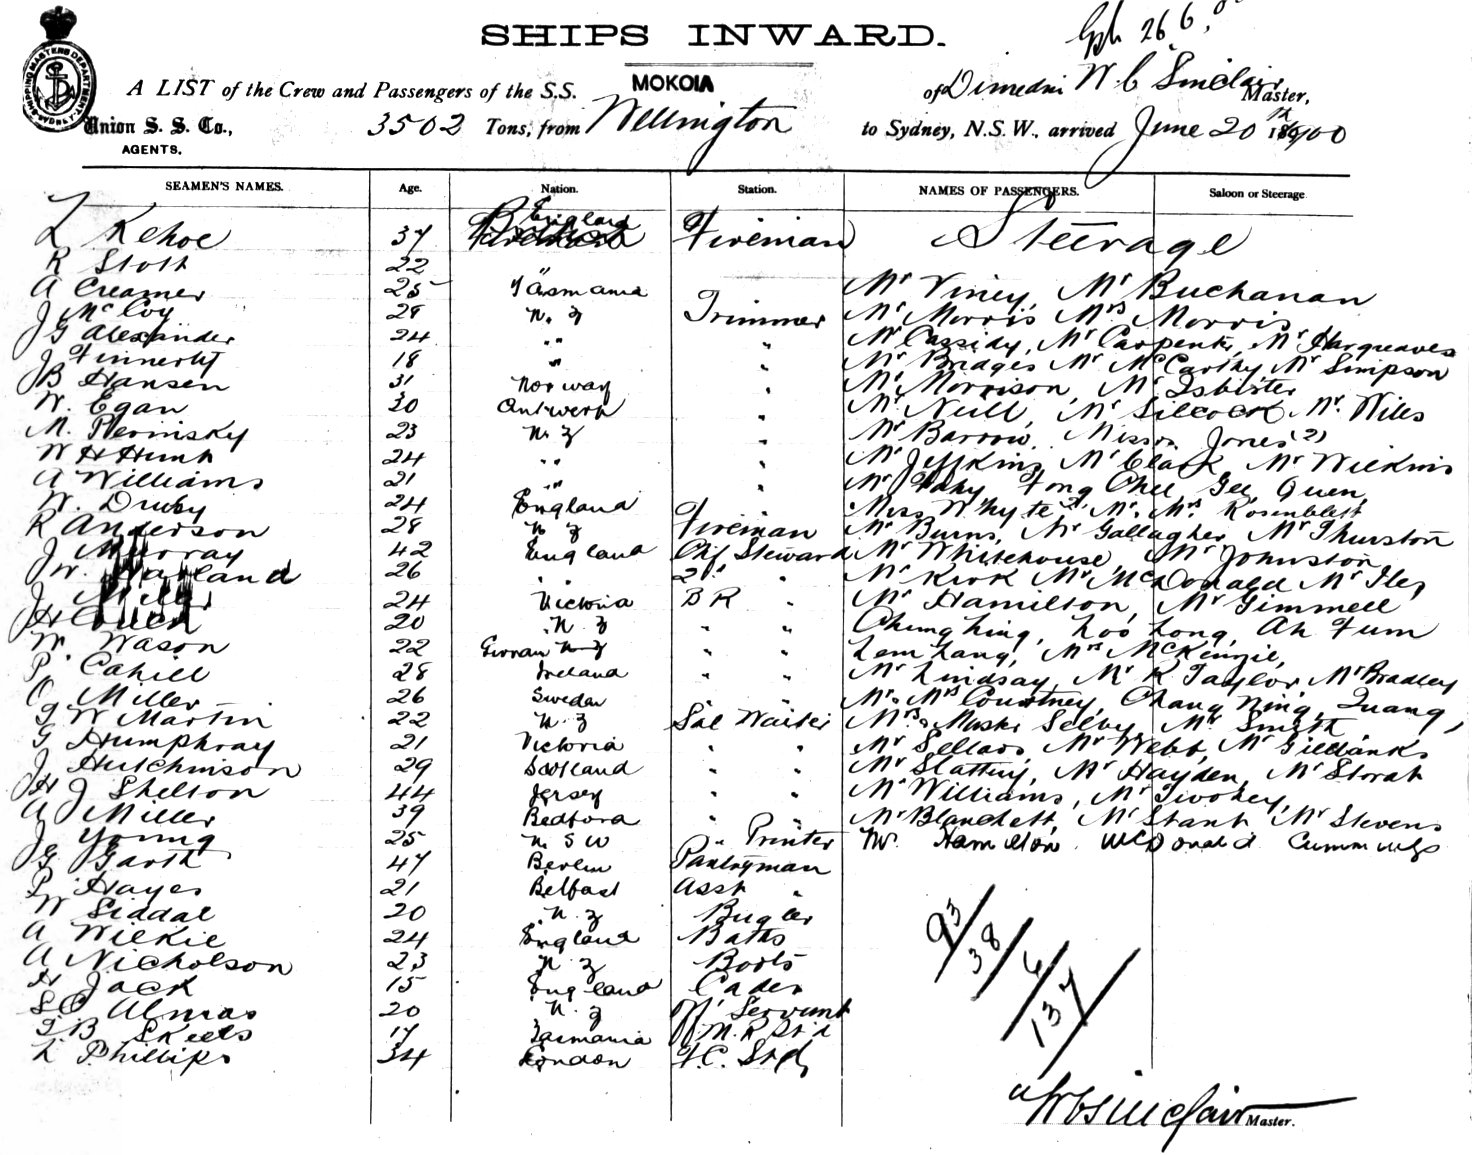 Gph 26 6.00
SHIPS INWARD.
SHIPPING MASTERS DEPARTMENT SYDNEY
A LIST of the Crew and Passengers of the S.S. MOKOIA of Dunedin W C Sinclair Master,
Union S. S. Co., AGENTS. 3502 Tons, from Wellington to Sydney, N.S.W., arrived June 20 1900
SEAMEN'S NAMES. Age. Nation. Station. NAMES OF PASSENGERS. Saloon or Steerage
Kehoe 37 England Fireman Steerage
R Stott 22 "
A Creamer 25 Tasmania Mr Viney, Mr Buchanan
J McCoy 28 N. Z Trimmer Mr Morris Mrs Morris
J G Alexander 24 " " Mr Cassidy, Mr Carpenter, Mr Hargreaves
J Finnerty 18 " " Mr Bridges Mr McCarthy Mr Simpson
B Hansen 31 Norway " Mr Morrison, Mr Isbister
W. Egan 30 Antwerp " Mr Neill, Mr Silcock Mr. Wiles
M. 23 N. Z " Mr Barrow, Misses Jones (2)
W H Hunt 24 " " Mr Jeffkins Mr Clark Mr Wilkins
A Williams 21 " " Mr Fahy Fong Chee, Gee, Quen,
W. Druby 24 England Miss Whyte, Mr. Mrs Rosenblett
R Anderson 28 N Z Fireman Mr Burns, Mr Gallagher, Mr Thurston
J Murray 42 England Chf Steward Mr Whitehouse, Mr Johnston
W. Harland 26 " 2d " Mr Kirk Mr McDonald Mr Iles,
J Miller 24 Victoria B R " Mr Hamilton, Mr Gimmell
H Couch 20 N. Z " " Chung hing, Loo Long, Ah Fum
W. Wason 22 N Z " " Lem hang, Mrs McKenzie,
P. Cahill 28 Ireland " " Mr Lindsay, Mr R Taylor Mr Bradley
O. Miller 26 Sweden Mr. Mrs Courtney, Chang Ning, Quang,
G W Martin 22 N. Z Sal Waiter Mrs Selby, Mr Smyth
G Humphray 21 Victoria " " Mr Sellars, Mr Webb, Mr Gillbanks
J Hutchinson 29 Scotland " " Mr Slattery, Mr Hayden, Mr Storah
H J Shelton 44 Jersey " " Mr Williams, Mr Twohey,
A Miller 39 Bedford " " Mr Blanchett, Mr Stant Mr Stevens
J. Young 25 N. S W " Printer Mr. Hamilton McDonald Cummings
G Garth 47 Berlin Pantryman
P. Hayes 21 Belfast Asst "
W Siddal 20 N. Z Bugler
A Wilkie 24 England Baths
A Nicholson 23 N Z Boots
H Jack 15 England Cadet
S C Almas 20 N. Z Off Servant
T B Skeels 17 Tasmania M. R Std
Phillips 34 London F.C. Std
93/
38/
6/
137/
W C Sinclair Master.